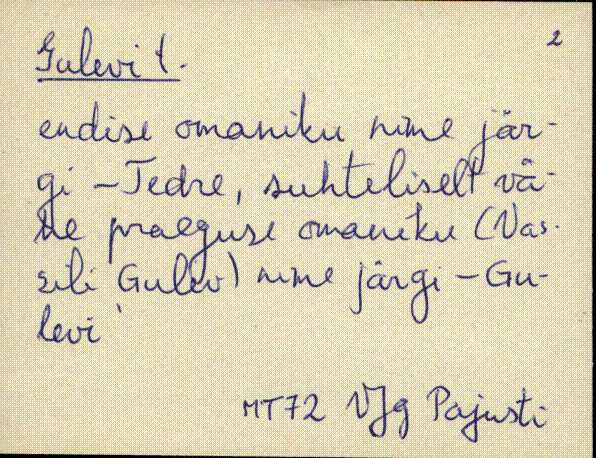 2
Gulevi t.
endise omaniku nime jär-
gi - Tedre, suhteliselt vä-
he praeguse omaniku (Vas-
sili Gulev) nime järgi - Gu-
levi
MT72 VJg Pajusti